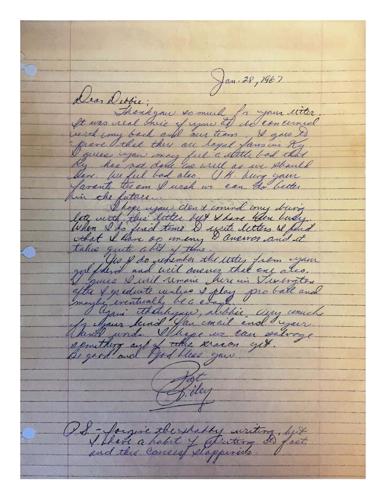 Jan. 28, 1967
Dear Debbie;
Thank you so much for your letter.
It was real nice of you to be concerned
with my back and our team. It goes to
prove that there are loyal fans in Ky.
I guess you may feel a little bad that
Ky. has not done too well as we should
have. We feel bad also. UK being your
favorite team I wish we can do better
in the future.
I hope you don't mind my being
late with this letter but I have been busy.
When I do find time to write letters I find
that I have so many to answer and it
takes quite a bit of time.
Yes I do remember the letter from your
girlfriend and will answer that one also.
I guess I will remain here in Lexington
after I graduate unless I play pro ball and
maybe eventually be a coach.
Again thank you, Debbie, very much
for your kind fan mail and your
kind words. I hope we can salvage
something out of this season yet.
Be good and God bless you.
Pat
Riley
P.S. - forgive the shabby writing, but
I have a habit of writing too fast
and this causes sloppiness.